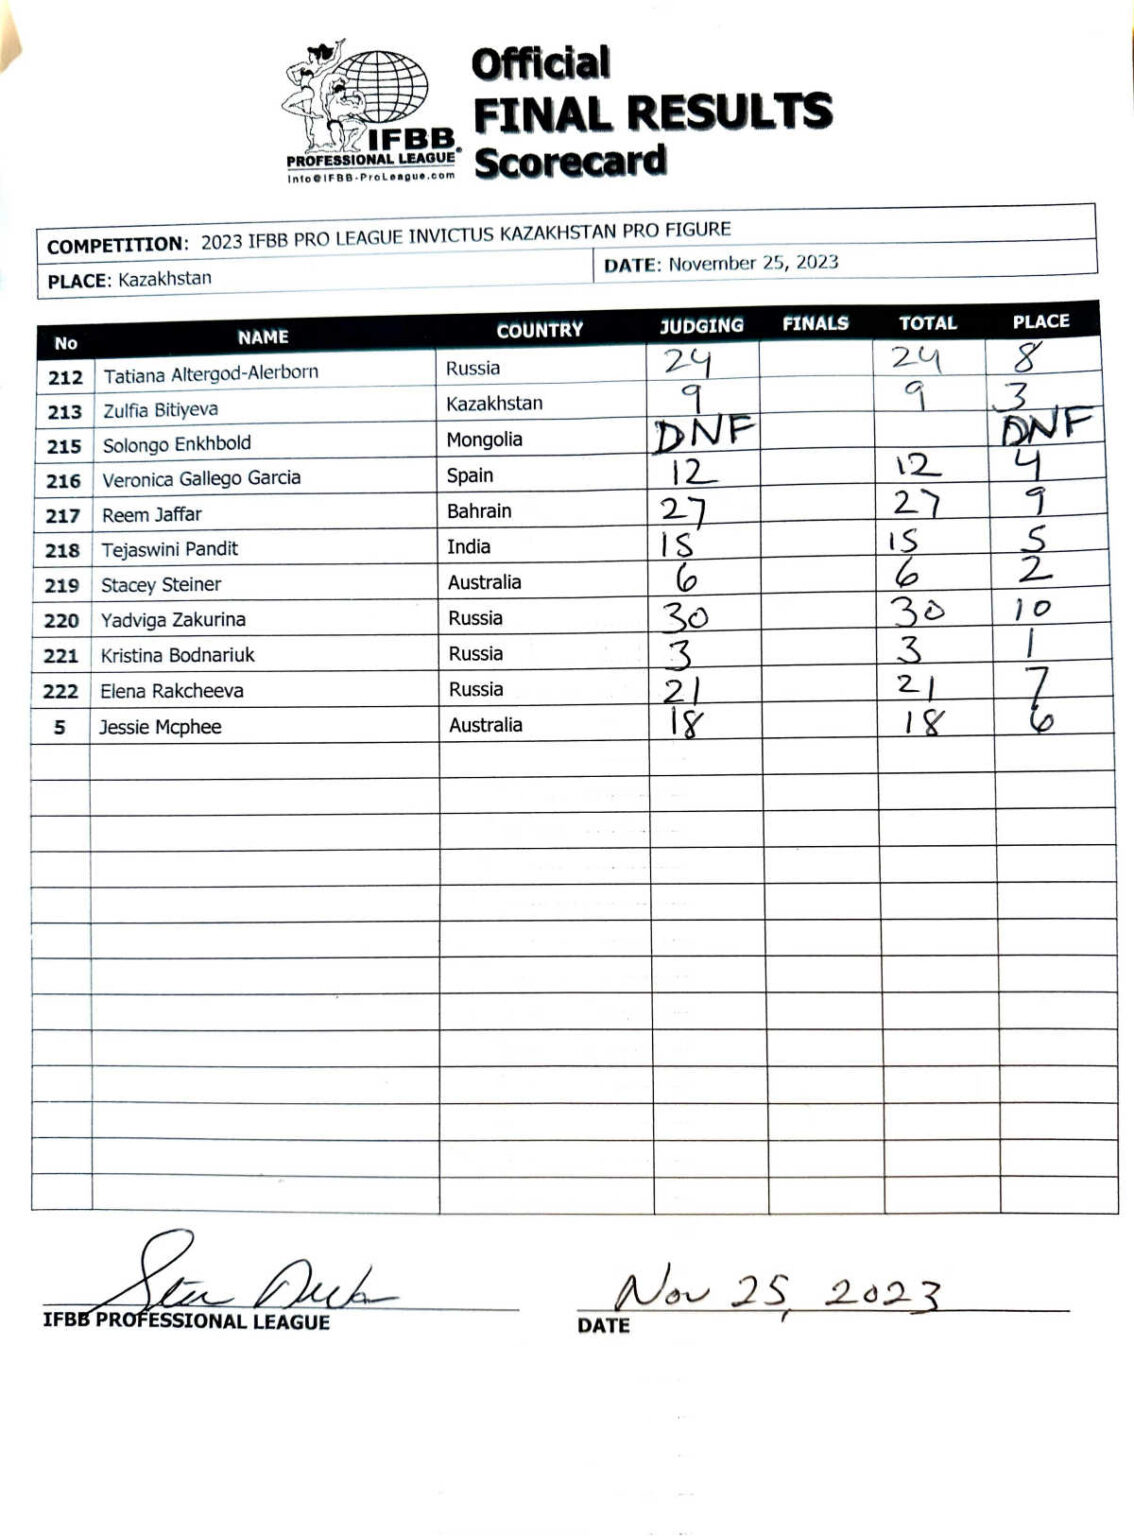 Official
FINAL RESULTS
Scorecard
IFBB®
PROFESSIONAL LEAGUE
Info@IFBB-ProLeague.com
COMPETITION: 2023 IFBB PRO LEAGUE INVICTUS KAZAKHSTAN PRO FIGURE
PLACE: Kazakhstan DATE: November 25, 2023
No NAME COUNTRY JUDGING FINALS TOTAL PLACE
212 Tatiana Altergod-Alerborn Russia 24 24 8
213 Zulfia Bitiyeva Kazakhstan 9 9 3
215 Solongo Enkhbold Mongolia DNF DNF
216 Veronica Gallego Garcia Spain 12 12 4
217 Reem Jaffar Bahrain 27 27 9
218 Tejaswini Pandit India 15 15 5
219 Stacey Steiner Australia 6 6 2
220 Yadviga Zakurina Russia 30 30 10
221 Kristina Bodnariuk Russia 3 3 1
222 Elena Rakcheeva Russia 21 21 7
5 Jessie Mcphee Australia 18 18 6
Nov 25, 2023
IFBB PROFESSIONAL LEAGUE DATE